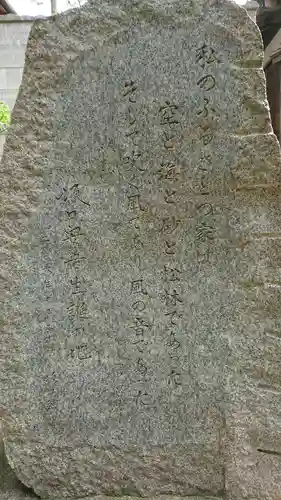 私のふるさとの家は
空と海と砂と松林であった
そして吹く風であり風の音であった
坂口安吾生誕の地